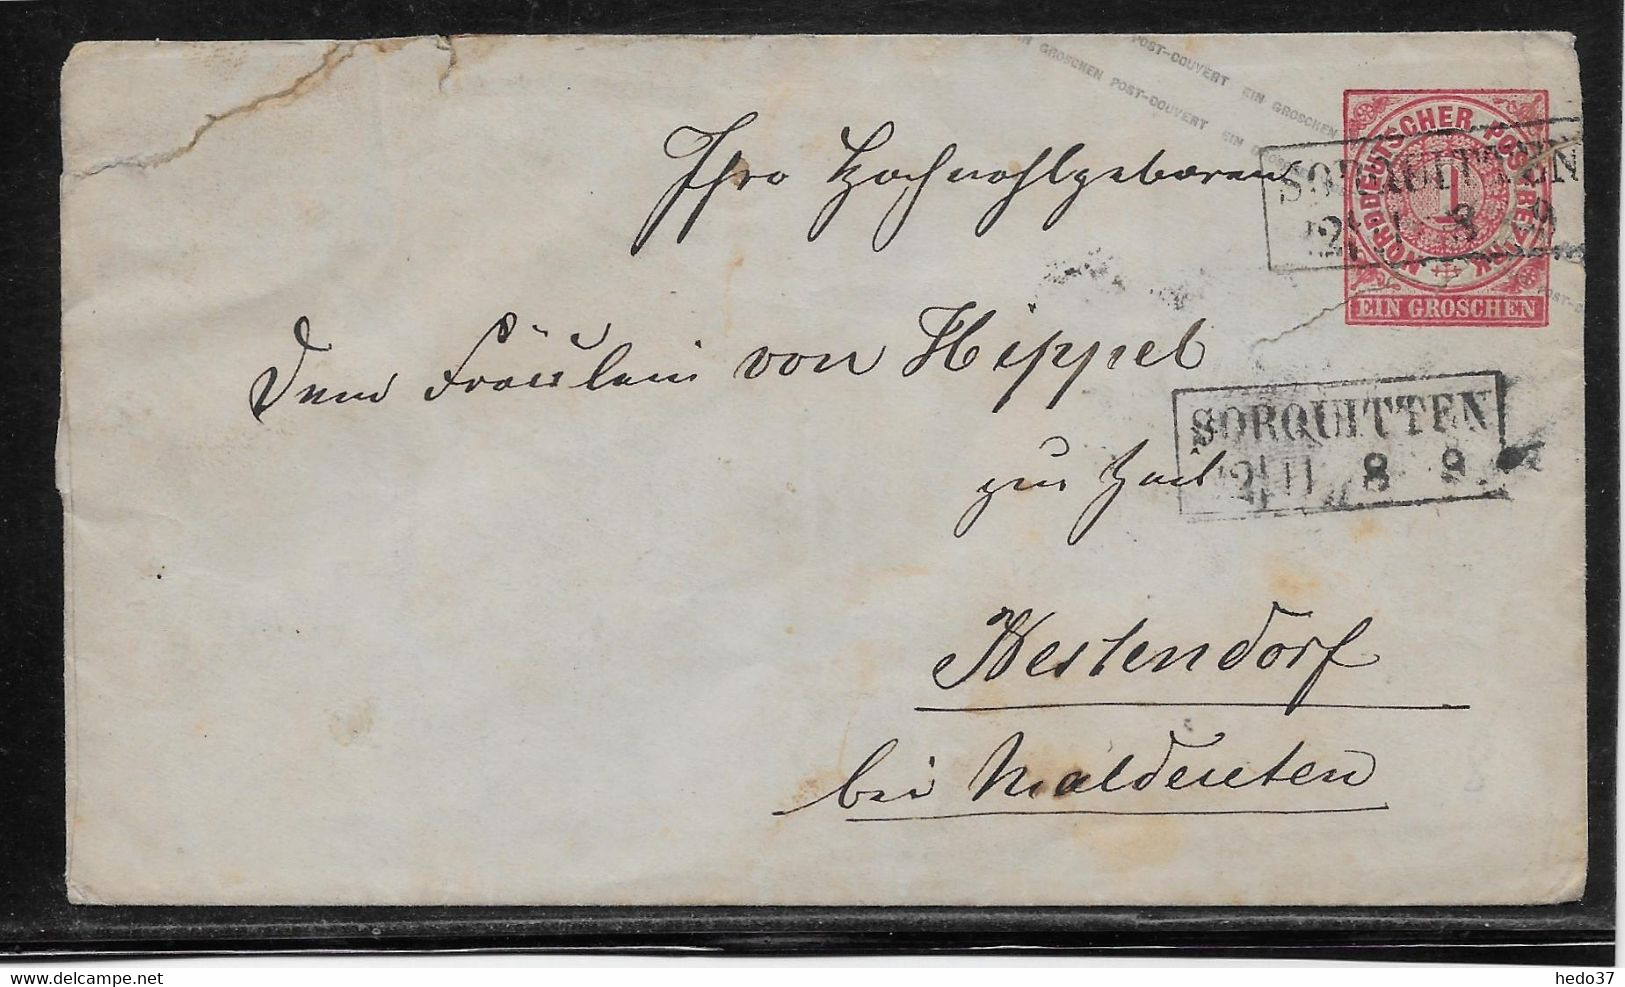 POST-COUVERT EIN GROSCHEN
EIN GROSCHEN POST-COUVERT EIN GROSCHEN
NORDDEUTSCHER POSTBEZIRK
1
EIN GROSCHEN
POST-
SORQUITTEN
8 9
Ihro Hochwohlgeboren
Dem Fräulein von Hippel
SORQUITTEN
11 8 9
zur Zeit
Westendorf
bei Maldeuten
delcampe.net
hedo37